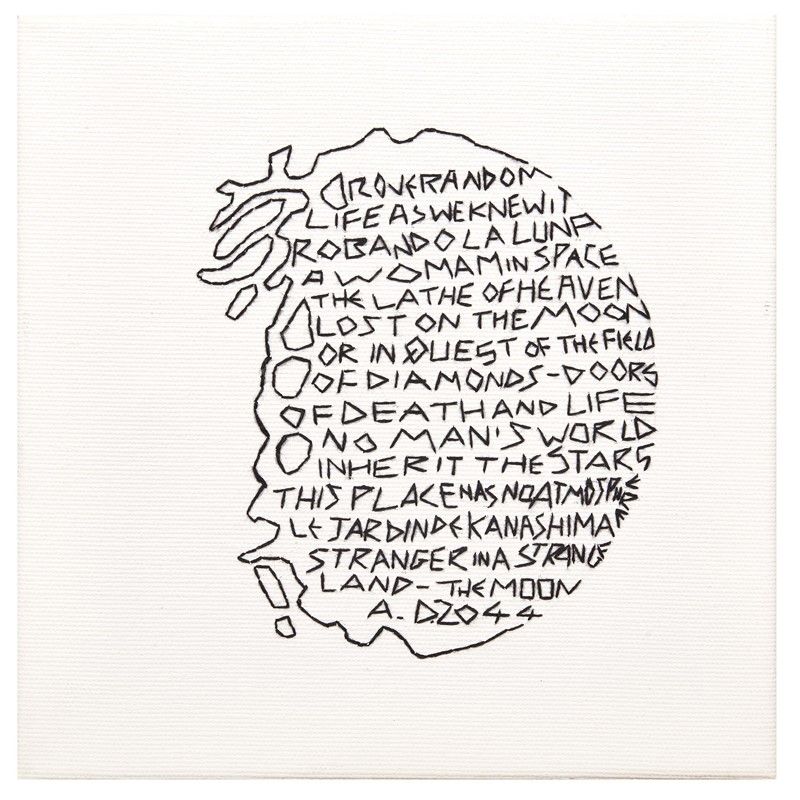 ROVERANDOM
LIFE AS WE KNEW IT
ROBANDO LA LUNA
A WOMAM IN SPACE
THE LATHE OF HEAVEN
LOST ON THE MOON
OR IN QUEST OF THE FIELD
OF DIAMONDS - DOORS
OF DEATH AND LIFE
NO MAN'S WORLD
INHERIT THE STARS
THIS PLACE HAS NO ATMOSPHERE
LE JARDIN DE KANASHIMA
STRANGER IN A STRANGE
LAND - THE MOON
A. D. 2044